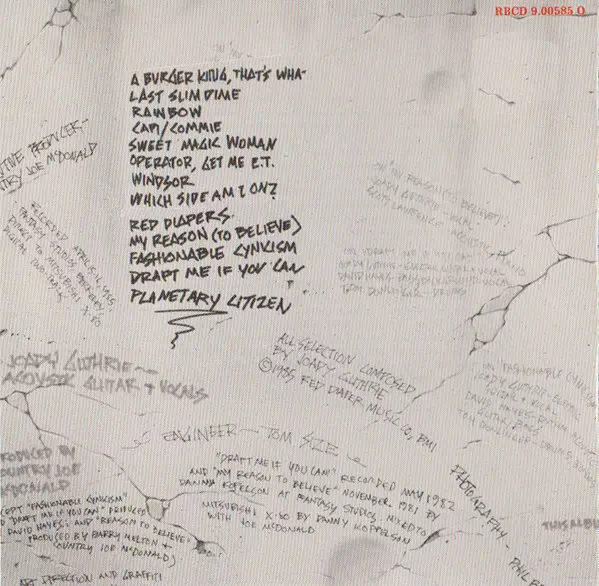 RBCD 9.00585 O
A BURGER KING, THAT'S WHA-
LAST SLIM DIME
RAINBOW
CAPI/COMMIE
SWEET MAGIC WOMAN
OPERATOR, GET ME E.T.
WINDSOR
WHICH SIDE AM I ON?
RED DIAPERS
MY REASON (TO BELIEVE)
FASHIONABLE CYNICISM
DRAFT ME IF YOU CAN
PLANETARY CITIZEN
TIVE PRODUCER-
NTRY JOE McDONALD
RECORDED APRIL 1985
FANTASY STUDIOS, BERKELEY,
DIRECT TO MITSUBISHI X-80
DIGITAL TWO TRACK
ON "MY REASON (TO BELIEVE)"
JOADY GUTHRIE - VOCAL
ACOUSTIC
TOM DONLINGER - DRUMS
ALL SELECTION COMPOSED
BY JOADY GUTHRIE
©1985 RED DIAPER MUSIC CO, BMI
JOADY GUTHRIE —
ACOUSTIC GUITAR + VOCALS
ON "FASHIONABLE CYNICISM
JOADY GUTHRIE - ELECTRIC
GUITAR + VOCAL
DAVID HAYES -
TOM DONLINGER - DRUMS
ENGINEER — TOM SIZE
RODUCED BY
OUNTRY JOE
McDONALD
CEPT "FASHIONABLE CYNICISM"
D "DRAFT ME IF YOU CAN" PRODUCED
DAVID HAYES; AND "REASON TO BELIEVE"
PRODUCED BY BARRY MELTON +
COUNTRY JOE McDONALD)
"DRAFT ME IF YOU CAN" RECORDED MAY 1982
AND "MY REASON TO BELIEVE" NOVEMBER 1981 BY
DANNY KOPELSON AT FANTASY STUDIOS, MIXED TO
MITSUBISHI X-80 BY DANNY KOPPELSON
WITH JOE McDONALD
PHOTOGRAPHY - PHIL B
THIS ALBU
ART DIRECTION AND GRAFFITI